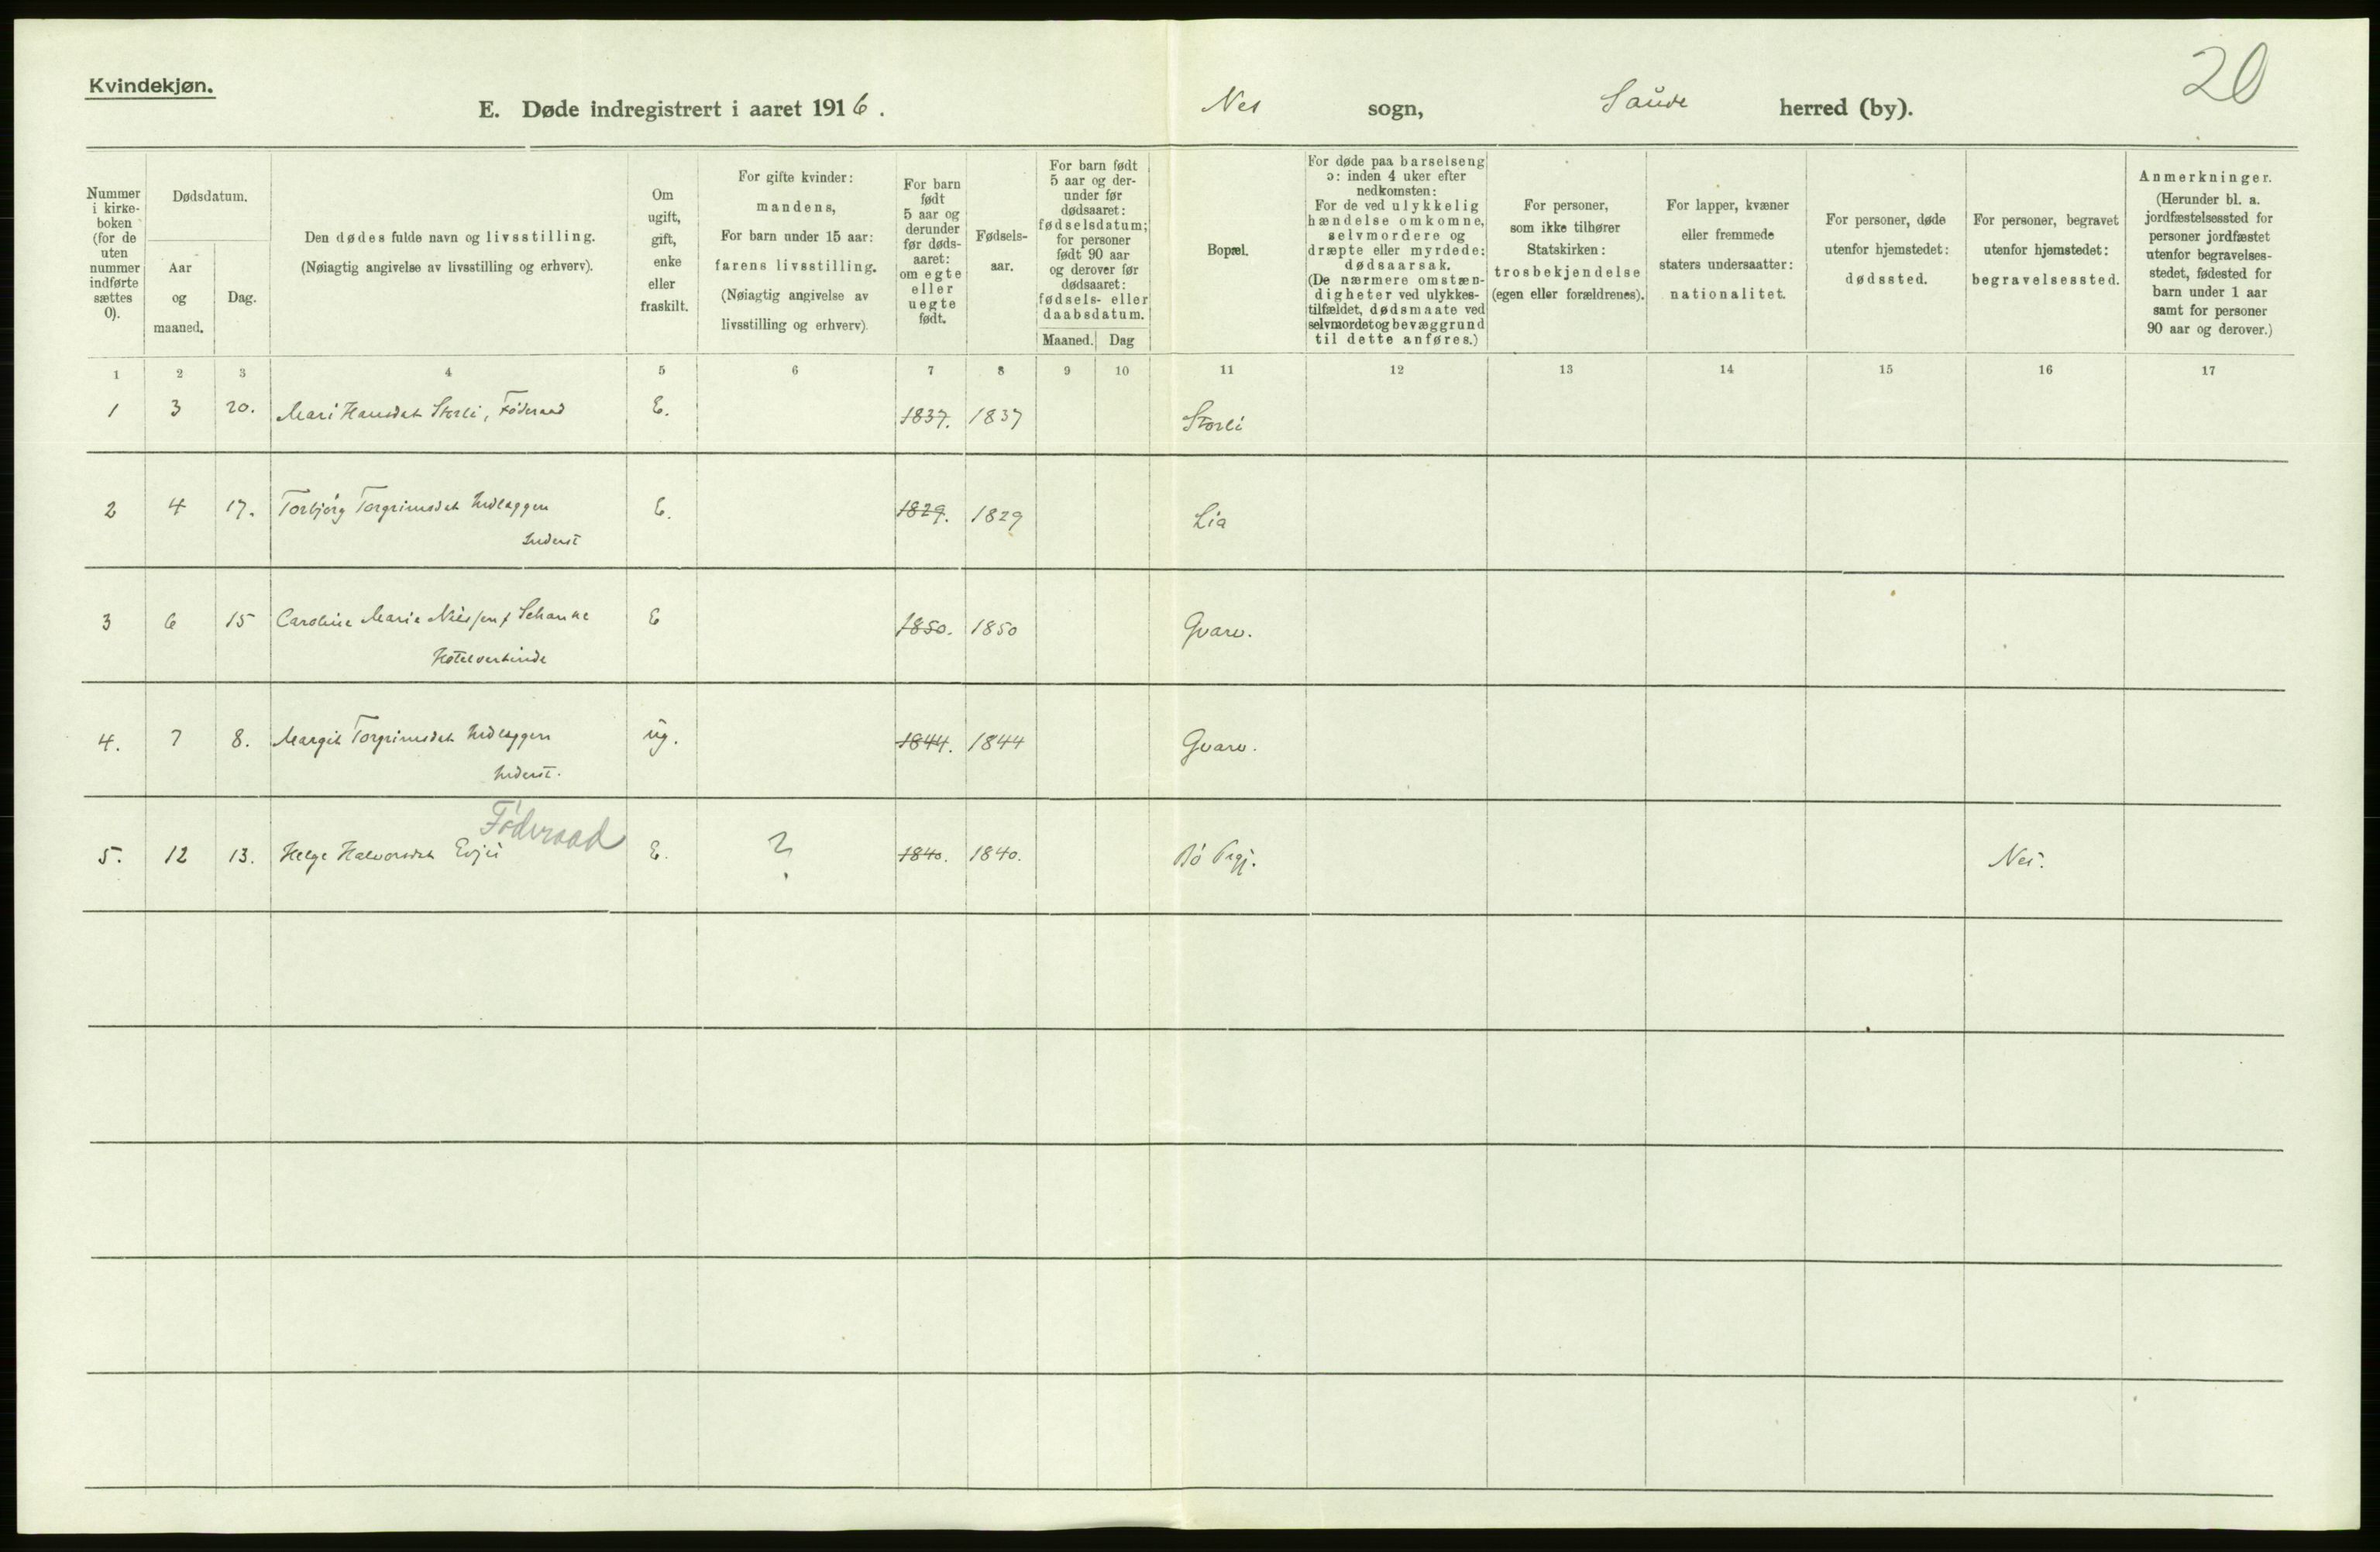 Kvindekjøn.
E. Døde indregistrert i aaret 1916.
Nes sogn, Saude herred (by).
20
Nummer i kirke-boken (for de uten nummer indførte sættes 0).
Dødsdatum.
Aar og maaned.
Dag.
Den dødes fulde navn og livsstilling.
(Nøiagtig angivelse av livsstilling og erhverv).
Om ugift, gift, enke eller fraskilt.
For gifte kvinder:
mandens,
For barn under 15 aar:
farens livsstilling.
(Nøiagtig angivelse av
livsstilling og erhverv).
For barn født 5 aar og derunder før døds-aaret: om egte eller uegte født.
Fødsels-aar.
For barn født 5 aar og der-under før dødsaaret: fødselsdatum; for personer født 90 aar og derover før dødsaaret: fødsels- eller daabsdatum.
Maaned. Dag
Bopæl.
For døde paa barselseng
ɔ: inden 4 uker efter
nedkomsten:
For de ved ulykkelig
hændelse omkomne,
selvmordere og
dræpte eller myrdede:
dødsaarsak.
(De nærmere omstæn-
digheter ved ulykkes-
tilfældet, dødsmaate ved
selvmordet og bevæggrund
til dette anføres.)
For personer,
som ikke tilhører
Statskirken:
trosbekjendelse
(egen eller forældrenes).
For lapper, kvæner
eller fremmede
staters undersaatter:
nationalitet.
For personer, døde
utenfor hjemstedet:
dødssted.
For personer, begravet
utenfor hjemstedet:
begravelsessted.
Anmerkninger.
(Herunder bl. a.
jordfæstelsessted for
personer jordfæstet
utenfor begravelses-
stedet, fødested for
barn under 1 aar
samt for personer
90 aar og derover.)
1 2 3 4 5 6 7 8 9 10 11 12 13 14 15 16 17
1 3 20. Mari Hansdat Storli, Föderaad E. 1837. 1837 Storli
2 4 17. Torbjörg Torgrimsdat Indlæggen E. 1829. 1829 Lia
Inderst
3 6 15 Caroline Marie Nielsen f Schanke E 1850. 1850 Gvarv.
Hotelvertinde
4. 7 8. Margit Torgrimsdat Indlæggen ug. 1844. 1844 Gvarv.
Inderst.
Föderaad
5. 12 13. Helge Halvorsdat Evju E. ? 1840. 1840. Bö Prgj. Nes.